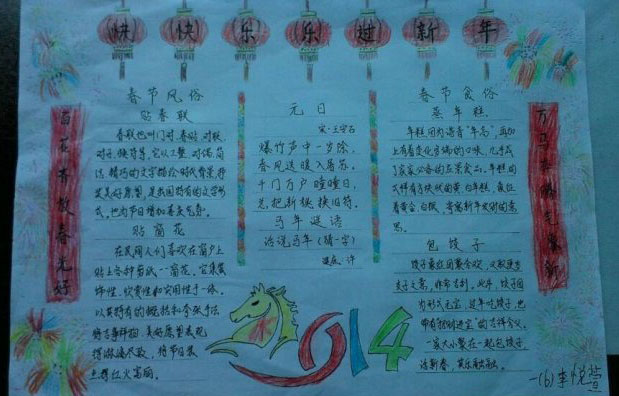 快快乐乐过新年
百花齐放春光好
春节风俗
贴春联
春联也叫门对、春贴、对联、
对子、桃符等，它以工整、对偶、简
洁、精巧的文字描绘时代背景，抒
发美好愿望，是我国特有的文学形
式，也为节日增加喜庆气氛。
贴窗花
在民间人们喜欢在窗户上
贴上各种剪纸—窗花。它集装
饰性、欣赏性和实用性于一体。
以其特有的概括和夸张手法
将吉事祥物、美好愿望表现
得淋漓尽致，将节日装
点得红火富丽。
元日
宋·王安石
爆竹声中一岁除，
春风送暖入屠苏。
千门万户曈曈日，
总把新桃换旧符。
马年谜语
话说马年（猜一字）
谜底：许
2014
春节食俗
蒸年糕
年糕因为谐音“年高”，再加
上有着变化多端的口味，几乎成
了家家必备的应景食品。年糕的
式样有方块状的黄、白年糕，象征
着黄金、白银，寄寓新年发财的意
思。
包饺子
为形式元宝，过年吃饺子，也
带有“招财进宝”的吉祥含义，
一家大小聚在一起包饺子，
话新春，其乐融融。
万马奔腾气象新
一(6) 李悦萱